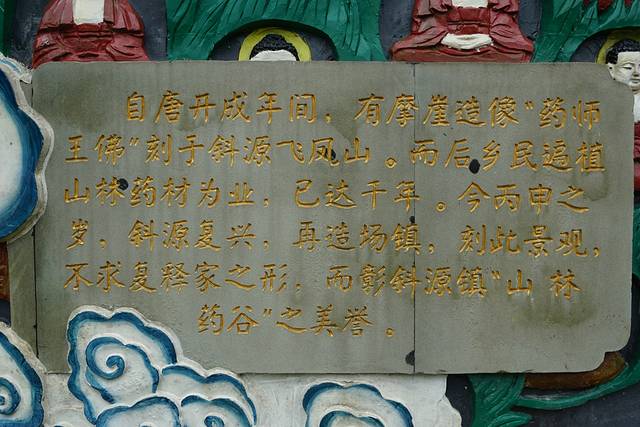 自唐开成年间，有摩崖造像“药师
王佛”刻于斜源飞凤山。而后乡民遍植
山林药材为业，已达千年。今丙申之
岁，斜源复兴，再造场镇，刻此景观，
不求复释家之形，而彰斜源镇“山林
药谷”之美誉。